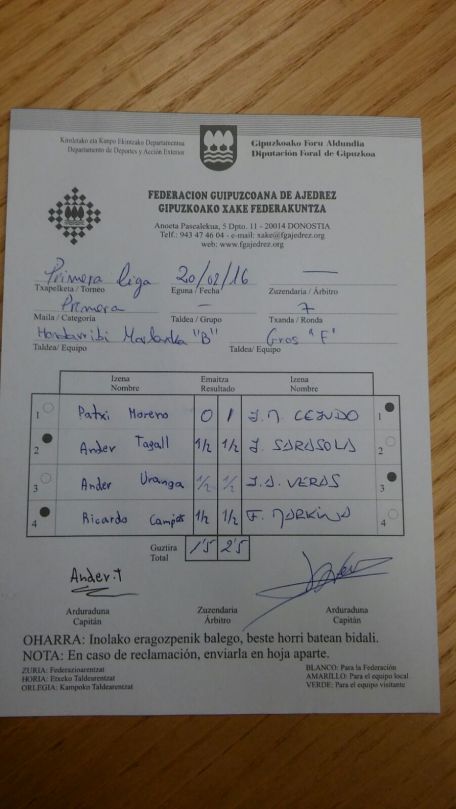 Kiroletako eta Kanpo Ekintzako Departamentua
Departamento de Deportes y Acción Exterior
Gipuzkoako Foru Aldundia
Diputación Foral de Gipuzkoa
FEDERACION GUIPUZCOANA DE AJEDREZ
GIPUZKOAKO XAKE FEDERAKUNTZA
Anoeta Pasealekua, 5 Dpto. 11 - 20014 DONOSTIA
Telf.: 943 47 46 04 - e-mail: xake@fgajedrez.org
web: www.fgajedrez.org
Primera liga 20/02/16 —
Txapelketa / Torneo Eguna / Fecha Zuzendaria / Árbitro
Primera — 7
Maila / Categoria Taldea / Grupo Txanda / Ronda
"B" Gros "F"
Taldea/ Equipo Taldea/ Equipo
Izena Nombre Emaitza Resultado Izena Nombre
1 Patxi Moreno 0 1 J.M. CEJUDO 1
2 Ander Tagall 1/2 1/2 J. SARASOLA 2
3 Ander Uranga 1/2 1/2 J.A. VERAS 3
4 Ricardo 1/2 1/2 F. 4
Guztira Total 1'5 2'5
Ander.T
Arduraduna Capitán Zuzendaria Árbitro Arduraduna Capitán
OHARRA: Inolako eragozpenik balego, beste horri batean bidali.
NOTA: En caso de reclamación, enviarla en hoja aparte.
ZURIA: Federazioarentzat BLANCO: Para la Federación
HORIA: Etxeko Taldearentzat AMARILLO: Para el equipo local
ORLEGIA: Kanpoko Taldearentzat VERDE: Para el equipo visitante